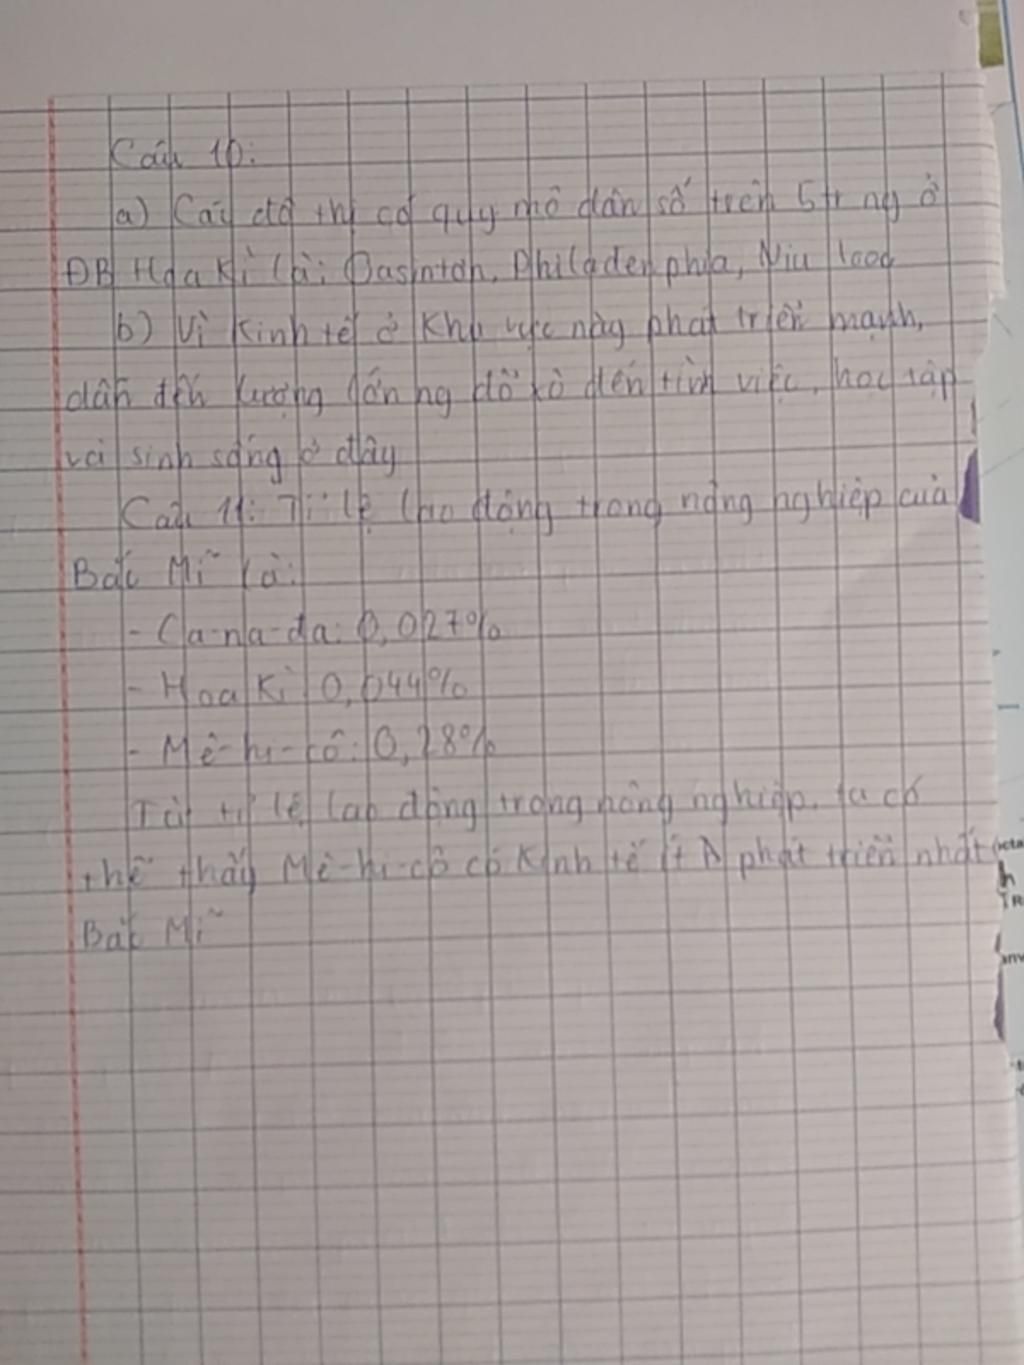 Câu 10:
a) Các đô thị có quy mô dân số trên 5tr ng ở
ĐB Hoa Kì là: Oasintơn, Philađenphia, Niu Iooc
b) Vì kinh tế ở khu vực này phát triển mạnh,
dẫn đến lượng lớn ng đổ xô đến tìm việc, học tập
và sinh sống ở đây
Câu 11: Tỉ lệ lao động trong nông nghiệp của
Bắc Mĩ là:
- Ca-na-da: 0,027%
- Hoa Kì 0,044%
- Mê-hi-cô: 0,28%
Từ tỉ lệ lao động trong nông nghiệp, ta có
thể thấy Mê-hi-cô có kinh tế ít phát triển nhất
Bắc Mĩ